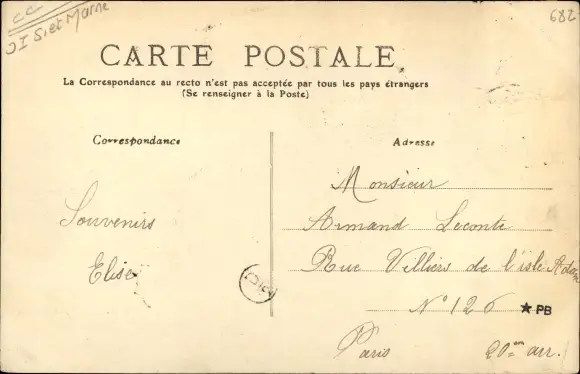 CC
JI S. et Marne
682
CARTE POSTALE
La Correspondance au recto n'est pas acceptée par tous les pays étrangers
(Se renseigner à la Poste)
Correspondance
Adresse
Souvenirs
Elise
Monsieur
Armand Leconte
Rue Villiers de l'isle Adam
N° 126
★ PB
Paris 20em arr.